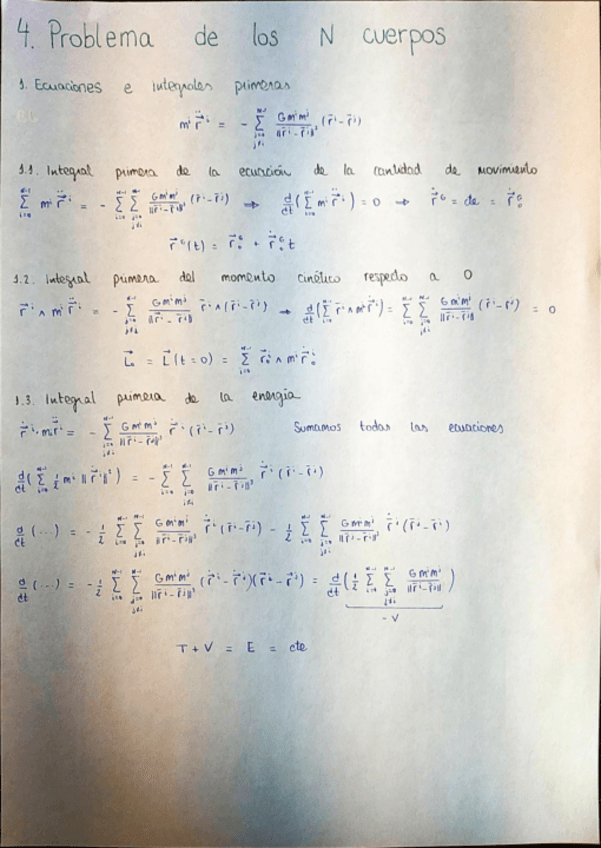 4. Problema de los N cuerpos
1. Ecuaciones e integrales primeras
mⁱ r̈⃗ⁱ = - Σ_{j=0, j≠i}^{N-1} Gmⁱmʲ/‖r̄ⁱ-r̄ʲ‖³ (r̄ⁱ-r̄ʲ)
1.1. Integral primera de la ecuación de la cantidad de movimiento
Σ_{i=0}^{N-1} mⁱ r̈⃗ⁱ = - Σ_{i=0}^{N-1} Σ_{j=0, j≠i}^{N-1} Gmⁱmʲ/‖r̄ⁱ-r̄ʲ‖³ (r̄ⁱ-r̄ʲ) ⇒ d/dt(Σ_{i=0}^{N-1} mⁱ ṙ⃗ⁱ) = 0 → ṙ⃗ᴳ = cte = ṙ⃗₀ᴳ
r⃗ᴳ(t) = r⃗₀ᴳ + ṙ⃗₀ᴳ t
1.2. Integral primera del momento cinético respecto a O
r⃗ⁱ ∧ mⁱ r̈⃗ⁱ = - Σ_{j=0, j≠i}^{N-1} Gmⁱmʲ/‖r̄ⁱ-r̄ʲ‖³ r̄ⁱ∧(r̄ⁱ-r̄ʲ) → d/dt(Σ_{i=0}^{N-1} r̄ⁱ∧mⁱṙ⃗ⁱ) = Σ_{i=0}^{N-1} Σ_{j=0, j≠i}^{N-1} Gmⁱmʲ/‖r̄ⁱ-r̄ʲ‖³ (r̄ⁱ-r̄ʲ) = 0
L⃗₀ = L⃗(t=0) = Σ_{i=0}^{N-1} r⃗₀ⁱ ∧ mⁱ ṙ⃗₀ⁱ
1.3. Integral primera de la energía
ṙ⃗ⁱ · mⁱ r̈⃗ⁱ = - Σ_{j=0, j≠i}^{N-1} Gmⁱmʲ/‖r̄ⁱ-r̄ʲ‖³ ṙ⃗ⁱ (r̄ⁱ-r̄ʲ) Sumamos todas las ecuaciones
d/dt(Σ_{i=0}^{N-1} ½ mⁱ ‖ṙ⃗ⁱ‖²) = - Σ_{i=0}^{N-1} Σ_{j=0, j≠i}^{N-1} Gmⁱmʲ/‖r̄ⁱ-r̄ʲ‖³ ṙ⃗ⁱ (r̄ⁱ-r̄ʲ)
d/dt (...) = - ½ Σ_{i=0}^{N-1} Σ_{j=0, j≠i}^{N-1} Gmⁱmʲ/‖r̄ⁱ-r̄ʲ‖³ ṙ⃗ⁱ (r̄ⁱ-r̄ʲ) - ½ Σ_{i=0}^{N-1} Σ_{j=0, j≠i}^{N-1} Gmⁱmʲ/‖r̄ⁱ-r̄ʲ‖³ ṙ⃗ⁱ (r̄ⁱ-r̄ʲ)
d/dt (...) = - ½ Σ_{i=0}^{N-1} Σ_{j=0, j≠i}^{N-1} Gmⁱmʲ/‖r̄ⁱ-r̄ʲ‖³ (ṙ⃗ⁱ-ṙ⃗ʲ)(r⃗ⁱ-r⃗ʲ) = d/dt(½ Σ_{i=0}^{N-1} Σ_{j=0, j≠i}^{N-1} Gmⁱmʲ/‖r̄ⁱ-r̄ʲ‖)
-V
T + V = E = cte